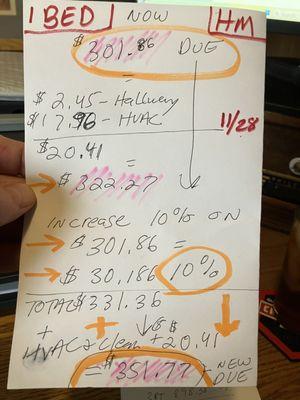 1 BED NOW HM
$301.86 DUE
=
$2.45 - Hallway
$17.96 - HVAC
11/28
$20.41
=
→ $322.27
increase 10% on
→ $301.86 =
→ $30.186 10%
TOTAL $331.36
+ + $
HVAC & Clean + 20.41
= $351.77 - NEW DUE